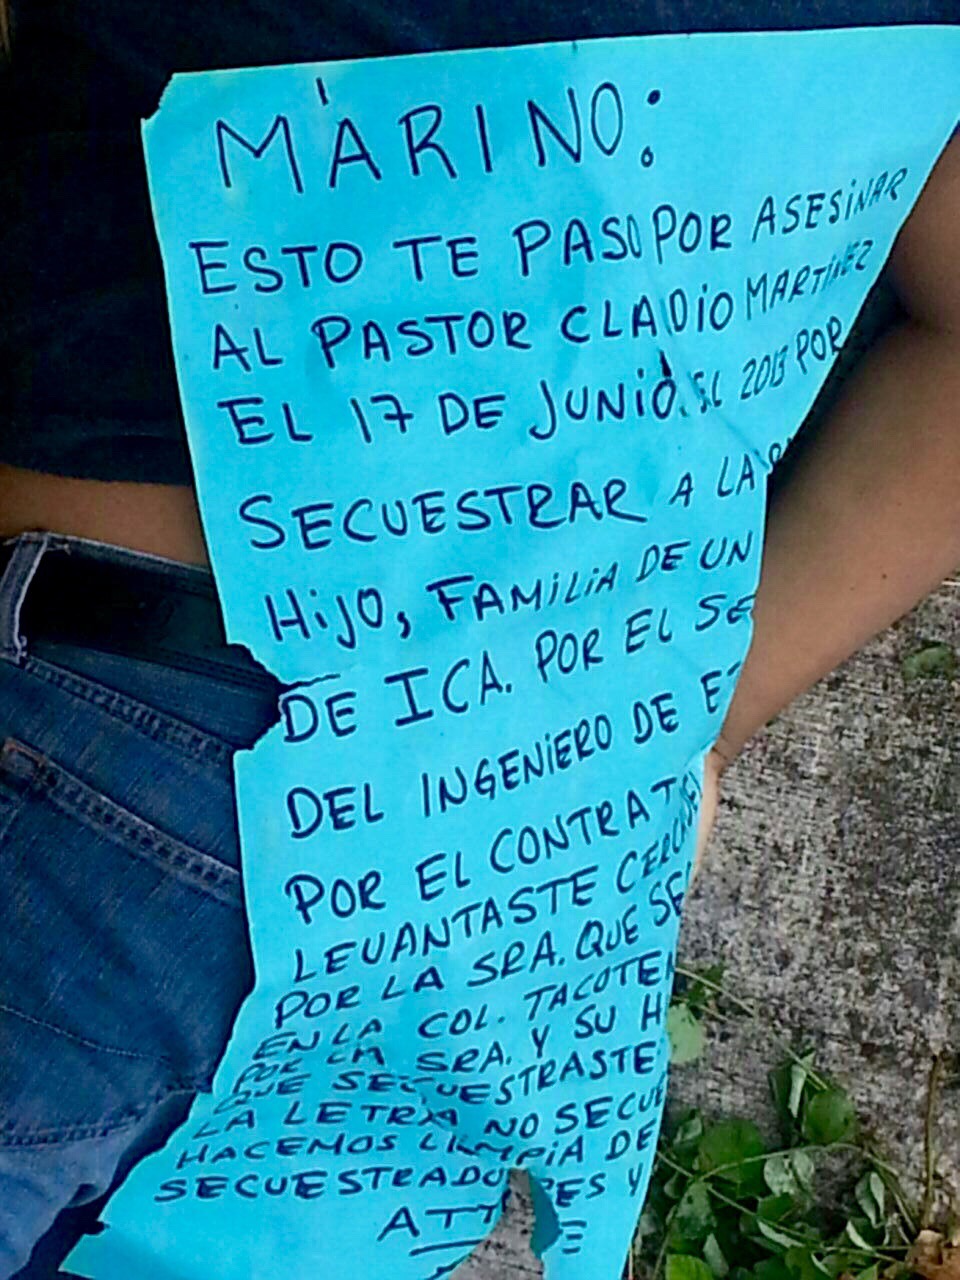 MARINO:
ESTO TE PASO POR ASESINAR
AL PASTOR CLADIO MARTINEZ
EL 17 DE JUNIO 2013 POR
SECUESTRAR A LA
HIJO, FAMILIA DE UN
DE ICA. POR EL SE
DEL INGENIERO DE E
POR EL CONTRAT
LEVANTASTE CERCA
POR LA SRA. QUE SE
EN LA COL. TACOTE
POR LA SRA. Y SU H
QUE SECUESTRASTE
LA LETRA NO SECUE
HACEMOS LIMPIA DE
SECUESTRADORES Y
ATT